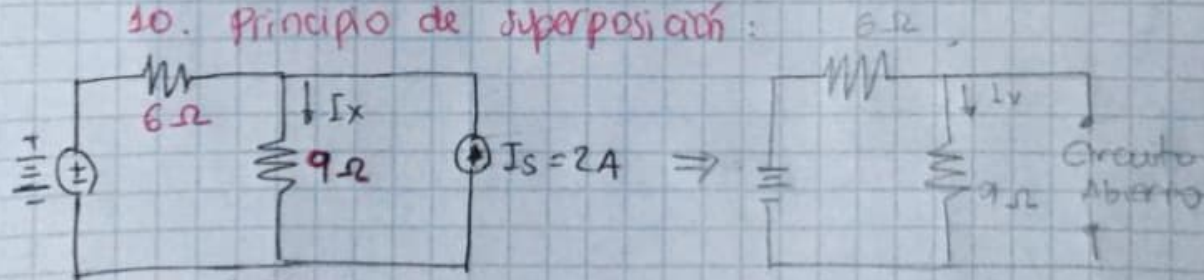 10. Principio de superposición:
6Ω
6Ω
+
Ix
9Ω
±
Is = 2A
⇒
Ix
9Ω
Circuito
Abierto